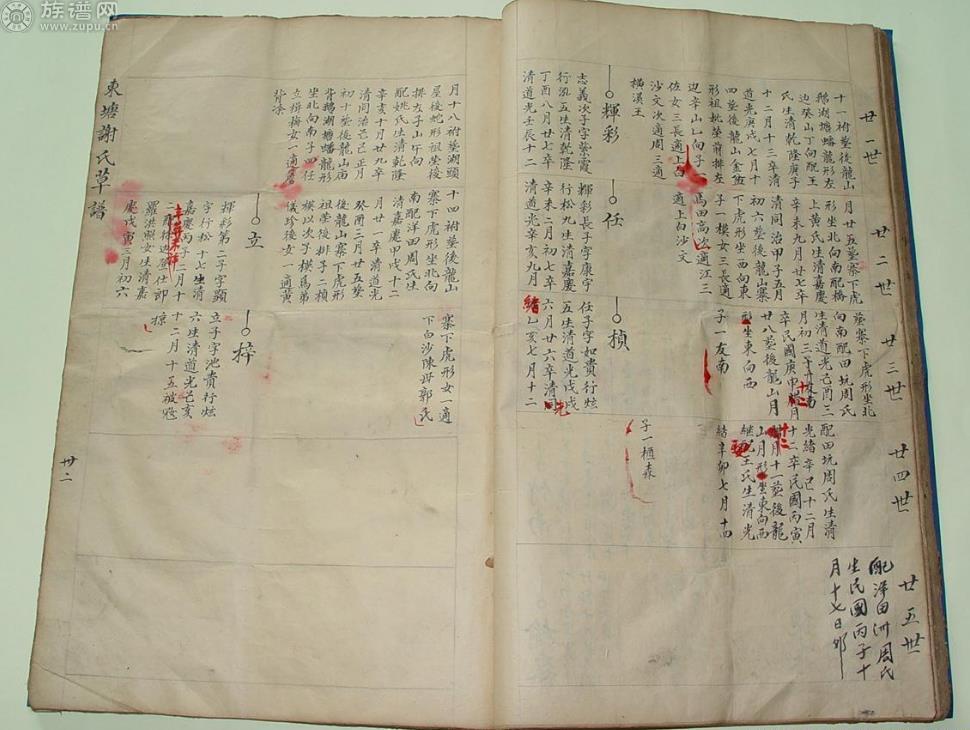 族谱网
www.zupu.cn
廿一世
十一祔塟後龍山
鵝湖塘蟠龍形左
邊癸山丁向配王
氏生清乾隆庚子
十二月十三卒清
道光庚戌七月十
四塟後龍山金盤
形祖妣塋前排左
邊辛山乙向子一
佐女三長適上白
沙文次適周三適
橫溪王
輝彩
志義次子字紫霞
行五生清乾隆
丁酉八月廿七卒
清道光壬辰十二
月十八祔塟湖頭
屋後蛇形祖塋後
排左子山午向
配姚氏生清乾隆
辛亥十月廿九卒
清同治己巳正月
初十塟後龍山庙
背鵝湖塘蟠龍形
坐北向南子四任
立揖梅女一適
廿二世
月廿五塟寨下虎
形坐北向南配橋
上黃氏生清嘉慶
辛未九月廿七卒
清同治甲子五月
初六塟後龍山寨
下虎形坐西向東
子一模女三長適
馬田高次適江三
適上白沙文
任
輝彩長子字康宇
行松九生清嘉慶
辛未二月初七卒
清道光辛亥九月
十四祔塟後龍山
寨下虎形坐北向
南配洋田周氏生
清嘉慶甲戌十二
月廿一卒清道光
癸酉三月廿五塟
後龍山寨下虎形
祖塋後排子二楨
模以次子模爲弟
儀珍後女一適黃
立
輝彩第二子字顯
字行松十七生清
嘉慶丙子二月十
羅洪照女生清嘉
慶戊寅三月初六
廿三世
塟寨下虎形坐北
向南配田坑周氏
生清道光己酉三
月初三
卒民國庚申月
廿八塟後龍山月
形坐東向西
子一友南
楨
任子字如貴行炫
五生清道光戊戌
六月廿六卒清光
緒乙亥七月十二
寨下虎形女一適
下白沙陳毋郭氏
梓
立子字池貴行炫
六生清道光己亥
十二月十五被寇
掠
廿四世
配田坑周氏生清
光緒辛巳十二月
十二卒民國丙寅
十二月十一塟後龍
山月形坐東向西
繼配王氏生清光
緒辛卯七月十四
子一櫃森
廿五世
配洋田洲周氏
生民國丙子十
月十七日卯
東塘謝氏草譜
卅二